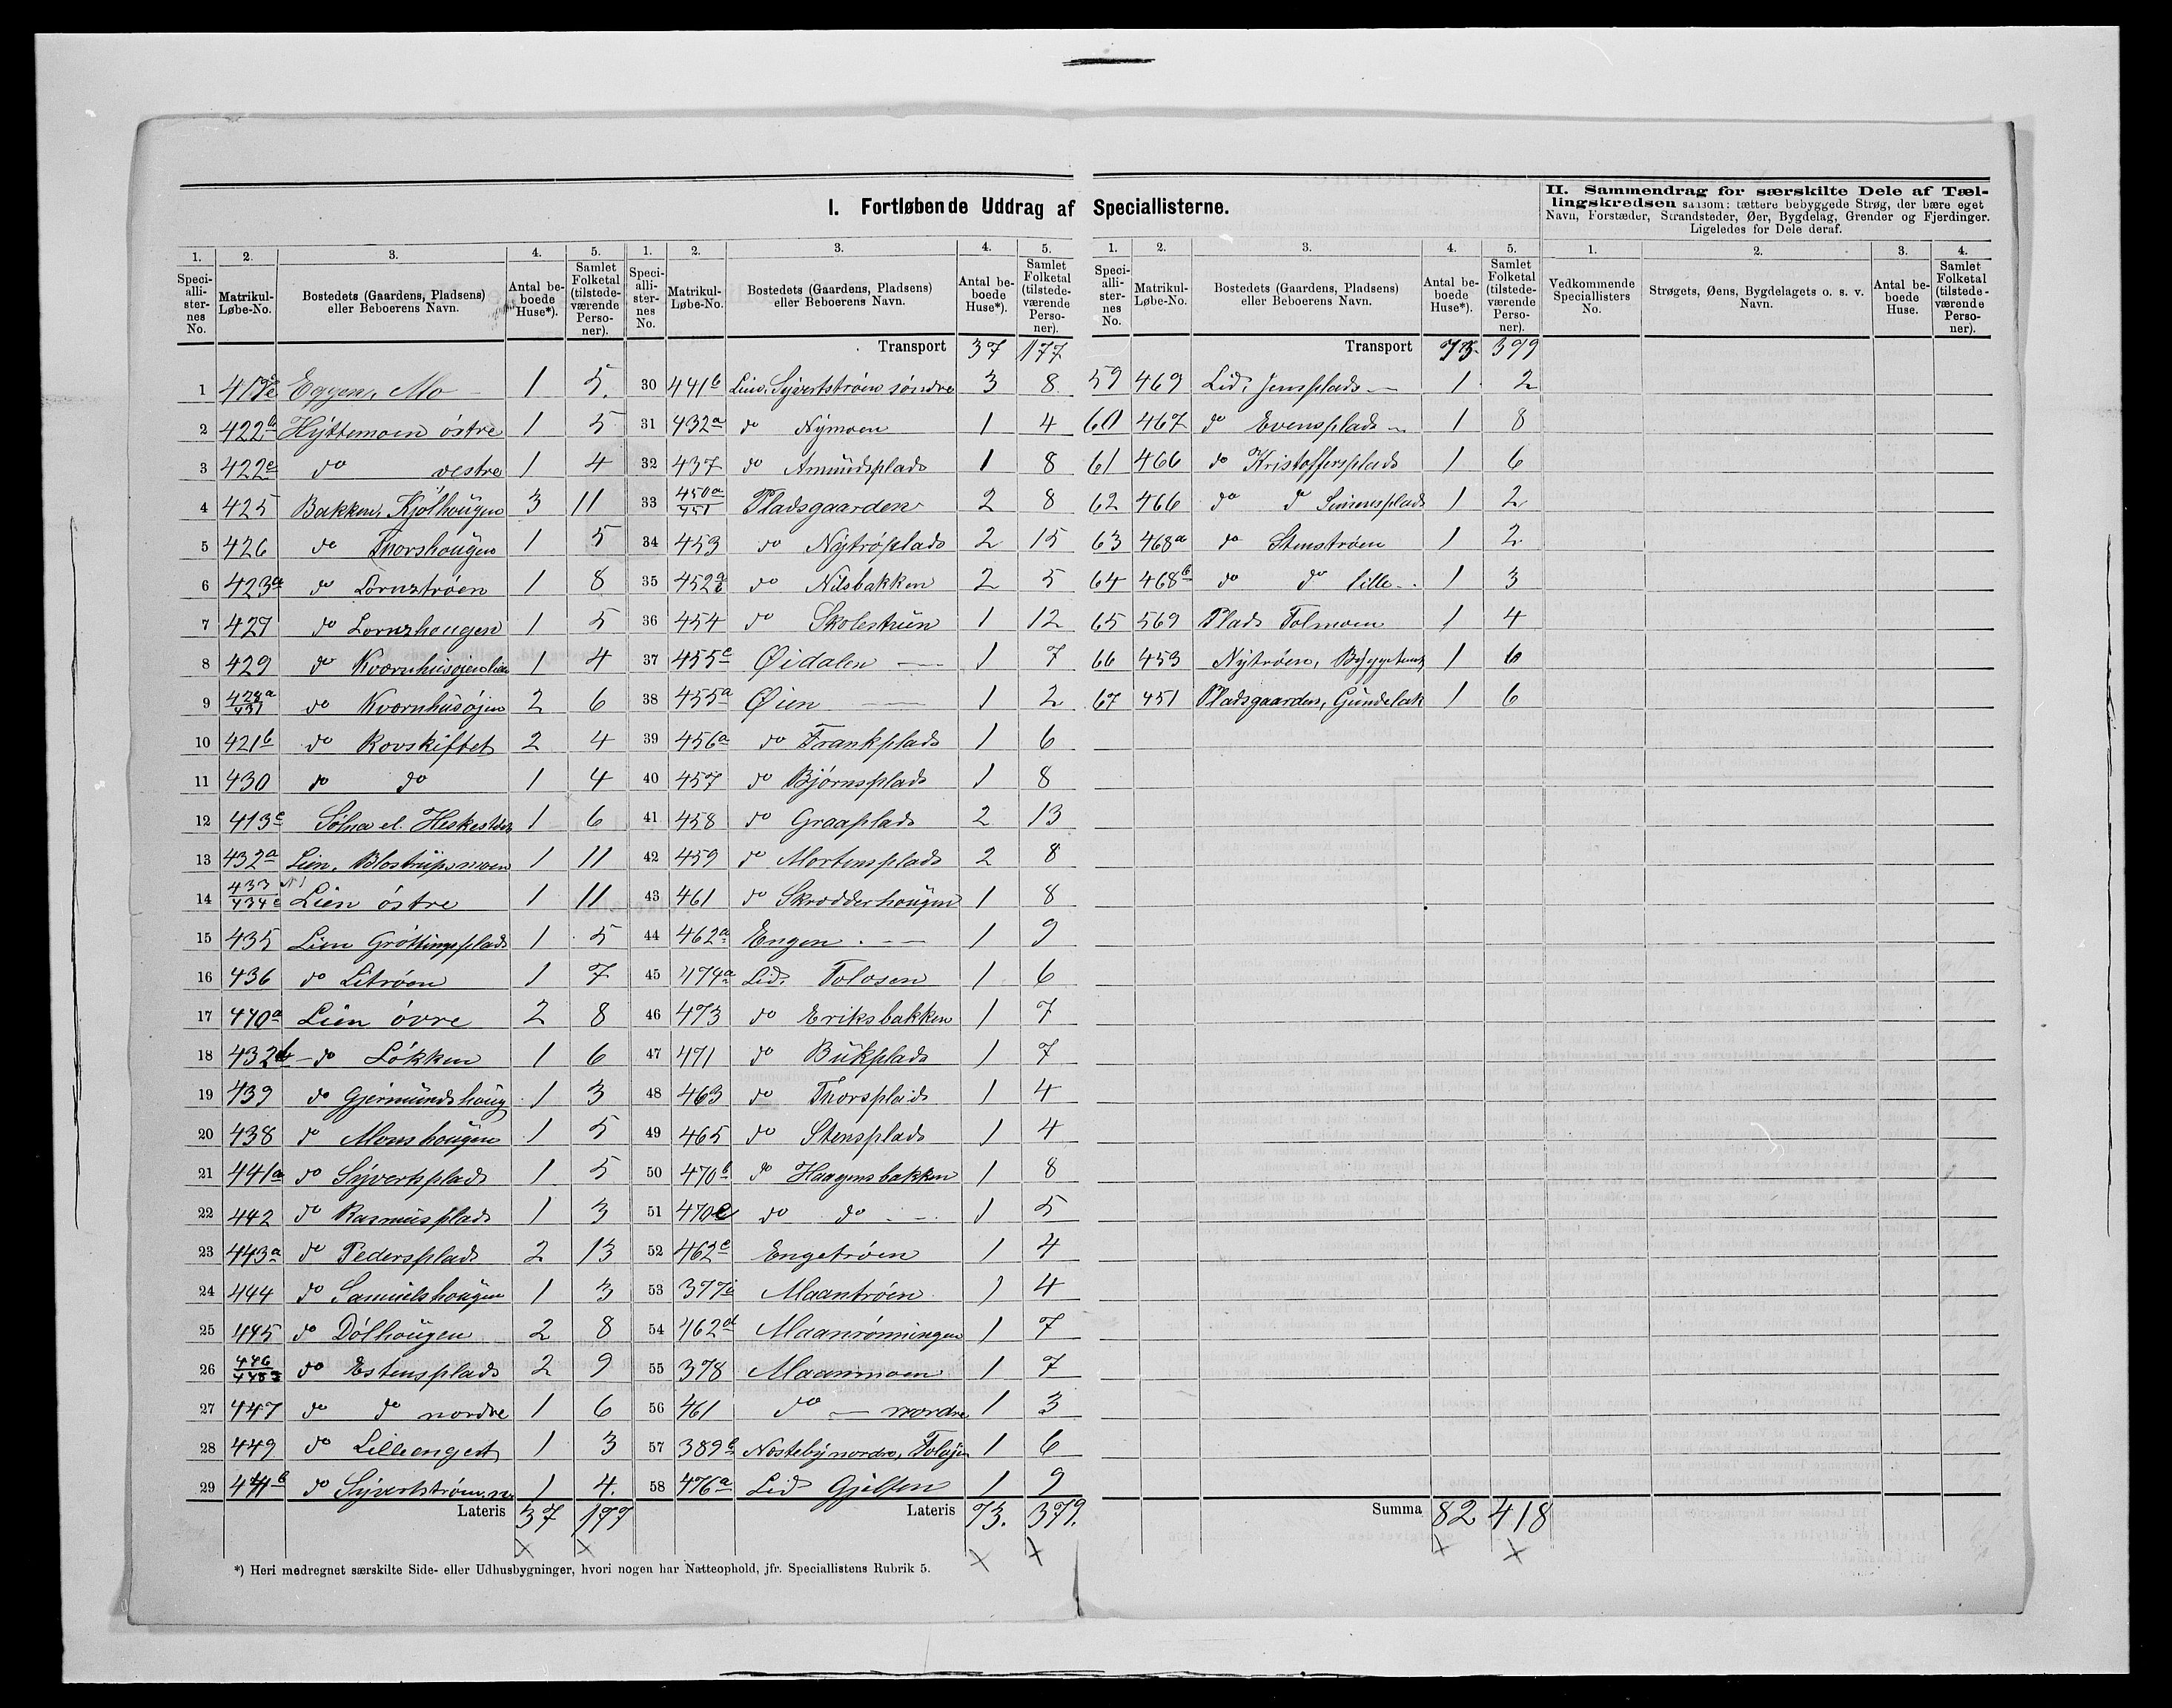 I. Fortløbende Uddrag af Speciallisterne.
II. Sammendrag for særskilte Dele af Tæl-
lingskredsen saasom: tættere bebyggede Strøg, der bære eget
Navn, Forstæder, Strandsteder, Øer, Bygdelag, Grender og Fjerdinger.
Ligeledes for Dele deraf.
1. 2. 3. 4. 5.
Speciallisternes No. Matrikul-Løbe-No. Bostedets (Gaardens, Pladsens) eller Beboerens Navn. Antal beboede Huse*). Samlet Folketal (tilstedeværende Personer).
1 Eggen, Mo 1 5.
2 422b Hyttemoen østre 1 5
3 422c do vestre 1 4
4 425 Bakken, Kjølhougen 3 11
5 426 do Thorshougen 1 5
6 423a do Lornztrøen 1 8
7 427 do Lornzhougen 1 5
8 429 do 1 4
9 428a/431 do Kværnhusøjen 2 6
10 421b do Rovskiftet 2 4
11 430 do do 1 4
12 413c Sølna el. 1 6
13 432a Lien, Blostrupsmoen 1 11
14 433/434c Lien østre 1 11
15 435 Lien Grøttingsplads 1 5
16 436 do Litrøen 1 7
17 440a Lien øvre 2 8
18 432b do Løkken 1 6
19 439 do Gjermundshoug 1 3
20 438 do Monshougen 1 5
21 441a do Syvertsplads 1 5
22 442 do Rasmusplads 1 3
23 443a do Pedersplads 2 13
24 444 do Samuelshougen 1 3
25 445 do Dølhougen 2 8
26 446 do Estensplads 2 9
27 447 do do nordre 1 6
28 449 do Lilleenget 1 3
29 441b do Syvertstrøen, 1 4.
Lateris 37 177
1. 2. 3. 4. 5.
Speciallisternes No. Matrikul-Løbe-No. Bostedets (Gaardens, Pladsens) eller Beboerens Navn. Antal beboede Huse*). Samlet Folketal (tilstedeværende Personer).
Transport 37 177
30 441b Lien, Syvertstrøen søndre 3 8
31 432a do Nymoen 1 4
32 437 do Amundsplads 1 8
33 450a/451 Pladsgaarden 2 8
34 453 do Nytrøplads 2 15
35 452a do Nilsbakken 2 5
36 454 do Skolestuen 1 12
37 455c Øidalen 1 7
38 455a Øien 1 2
39 456a do Frankplads 1 6
40 457 do Bjørnsplads 1 8
41 458 do Graaplads 2 13
42 459 do Mortensplads 2 8
43 461 do Skrædderhougen 1 8
44 462a Engen 1 9
45 474a Lid, Tolosen 1 6
46 473 do Eriksbakken 1 7
47 471 do Bukplads 1 7
48 463 do Thorsplads 1 4
49 465 do Stensplads 1 4
50 470b do Haagensbakken 1 8
51 470c do do 1 5
52 462c Engetrøen 1 4
53 377i Maantrøen 1 4
54 462d Maanrønningen 1 7
55 378 Maanmoen 1 7
56 461 do nordre 1 3
57 389c Nosteby nordre, 1 6
58 476a Lid Gjelten 1 9
Lateris 73. 379.
1. 2. 3. 4. 5.
Speciallisternes No. Matrikul-Løbe-No. Bostedets (Gaardens, Pladsens) eller Beboerens Navn. Antal beboede Huse*). Samlet Folketal (tilstedeværende Personer).
Transport 73. 379
59 469 Lid, Jensplads 1 2
60 467 do Evensplads 1 8
61 466 do Kristoffersplads 1 6
62 466 do do Simensplads 1 2
63 468a do Stenstrøen 1 2
64 468b do do lille 1 3
65 569 Plads Tolmoen 1 4
66 453 Nytrøen, 1 6
67 451 Pladsgaarden, Gundelak 1 6
Summa 82 418
1. 2. 3. 4.
Vedkommende Speciallisters No. Strøgets, Øens, Bygdelagets o. s. v. Navn. Antal beboede Huse. Samlet Folketal (tilstedeværende Personer).
*) Heri medregnet særskilte Side- eller Udhusbygninger, hvori nogen har Natteophold, jfr. Speciallistens Rubrik 5.